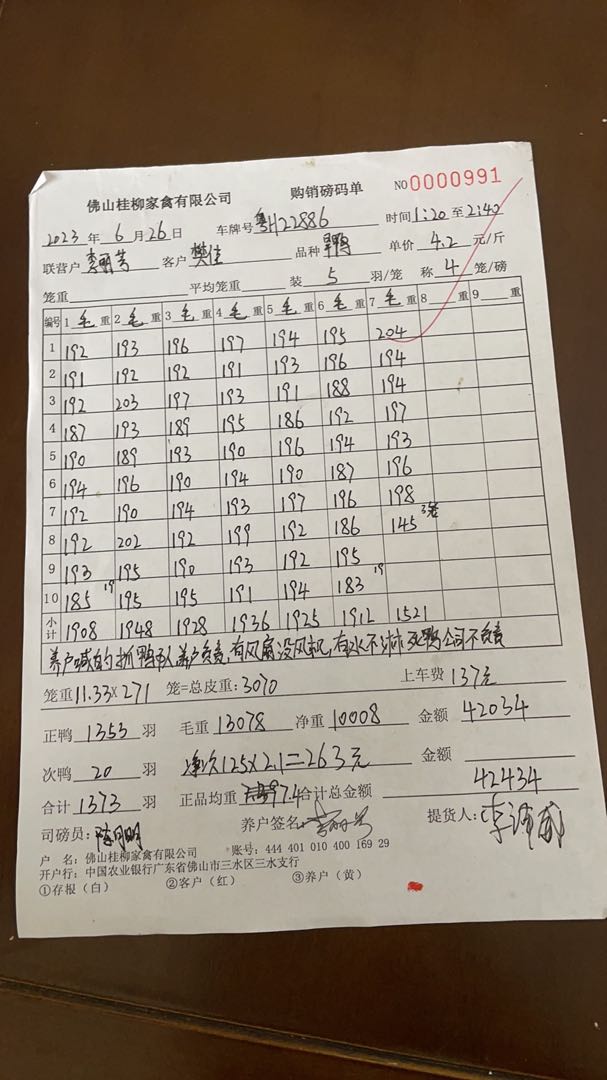 佛山桂柳家禽有限公司 购销磅码单 NO 0000991
2023 年 6 月 26 日 车牌号 粤H22886 时间 1:20 至 2:40
联营户 李丽芳 客户 樊佳 品种 单价 4.2 元/斤
笼重 平均笼重 装 5 羽/笼 称 4 笼/磅
编号 1 毛 重 2 毛 重 3 毛 重 4 毛 重 5 毛 重 6 毛 重 7 毛 重 8 重 9 重
1 192 193 196 197 194 195 204
2 191 192 192 191 193 196 194
3 192 203 197 193 191 188 194
4 187 193 189 195 186 192 197
5 190 189 193 190 196 194 193
6 194 196 190 194 190 187 196
7 192 190 194 193 197 196 198
8 192 202 192 199 192 186 145 3笼
9 193 195 190 193 192 195
10 185 19 195 195 191 194 183 19
小计 1908 1948 1928 1936 1925 1912 1521
养户喊的抓鸭队养户负责,有风扇没风机,有水不淋死鸭公司不负责
笼重 11.33×271 笼=总皮重: 3070 上车费 137元
正鸭 1353 羽 毛重 13078 净重 10008 金额 42034
次鸭 20 羽 125×2.1=263元 金额
合计 1373 羽 正品均重 7.4 合计总金额 42434
司磅员: 陈月明 养户签名: 李丽芳 提货人:
户 名: 佛山桂柳家禽有限公司 账号: 444 401 010 400 169 29
开户行: 中国农业银行广东省佛山市三水区三水支行
①存报(白) ②客户(红) ③养户(黄)